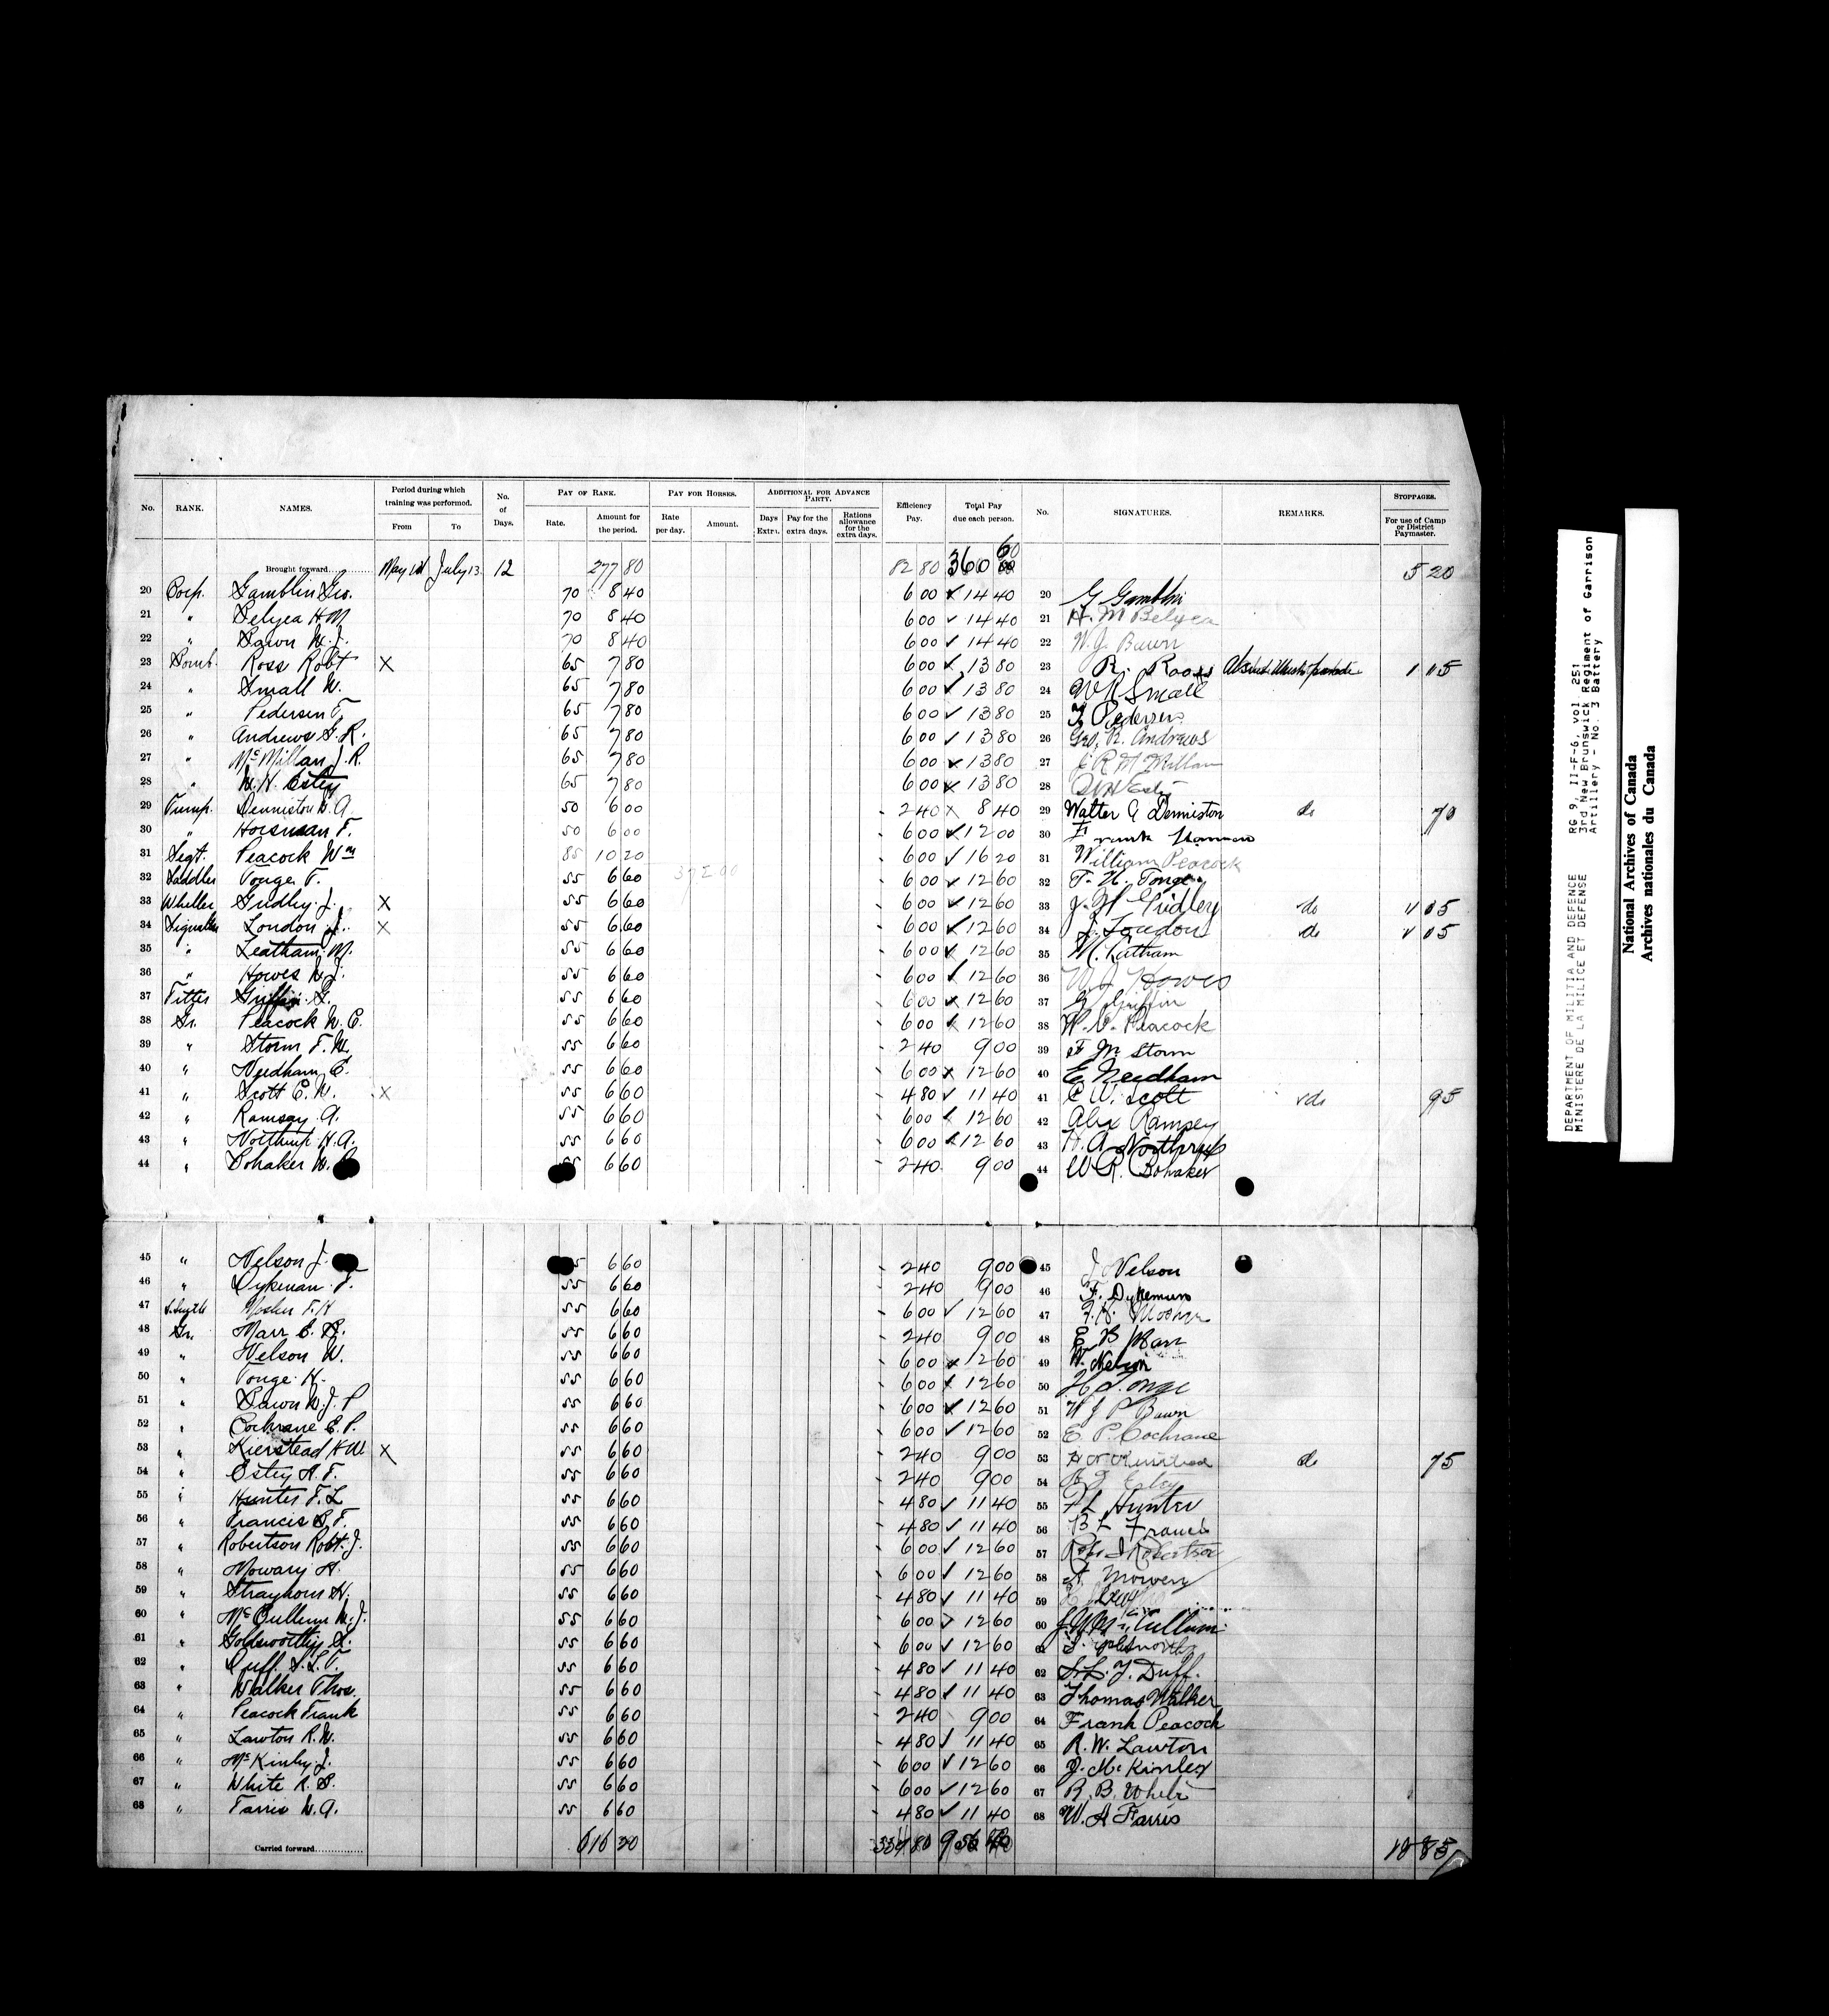 No. RANK. NAMES. Period during which training was performed. From To No. of Days. PAY OF RANK. Rate. Amount for the period. PAY FOR HORSES. Rate per day. Amount. ADDITIONAL FOR ADVANCE PARTY. Days Extra. Pay for the extra days. Rations allowance for the extra days. Efficiency Pay. Total Pay due each person. No. SIGNATURES. REMARKS. STOPPAGES. For use of Camp or District Paymaster.
Brought forward............ May 12 July 13 12 277 80 82 80 360 60 5 20
20 Corp. Gamblin Geo. 70 8 40 6 00 14 40 20 G Gamblin
21 " Belyea H.M 70 8 40 6 00 ✓ 14 40 21 H. M Belyea
22 " Bawn W. J. 70 8 40 6 00 ✓ 14 40 22 W. J. Bawn
23 Bomb. Ross Robt X 65 7 80 6 00 13 80 23 R. Ross 1 05
24 " Small W. 65 7 80 6 00 ✓ 13 80 24 W R Small
25 " Pedersen T. 65 7 80 6 00 ✓ 13 80 25 T. Pedersen
26 " Andrews G. R. 65 7 80 6 00 ✓ 13 80 26 Geo. R. Andrews
27 " McMillan J. R. 65 7 80 6 00 13 80 27 J R McMillan
28 " W. H. Estey 65 7 80 6 00 x 13 80 28 W H Estey
29 Trump. Denniston W. A. 50 6 00 2 40 x 8 40 29 Walter A Denniston do 70
30 " Horsman F. 50 6 00 6 00 12 00 30 Frank Horsman
31 Sergt. Peacock Wm 85 10 20 6 00 ✓ 16 20 31 William Peacock
32 Saddler Tonge T. 55 6 60 6 00 12 60 32 T. H. Tonge
33 Wheeler Gridley J. X 55 6 60 6 00 ✓ 12 60 33 J. H Gridley do 1 05
34 Signaller London J. X 55 6 60 6 00 12 60 34 J. London do 1 05
35 " Leatham M. 55 6 60 6 00 x 12 60 35 M. Leatham
36 " Howes W. J. 55 6 60 6 00 ✓ 12 60 36 W J Howes
37 Fitter Griffin G. 55 6 60 6 00 12 60 37 G Griffin
38 Gr. Peacock W. C. 55 6 60 6 00 12 60 38 W. C. Peacock
39 " Storm F. W. 55 6 60 2 40 9 00 39 F W Storm
40 " Needham E. 55 6 60 6 00 x 12 60 40 E. Needham
41 " Scott C. W. X 55 6 60 4 80 ✓ 11 40 41 C W. Scott do 95
42 " Ramsay A. 55 6 60 6 00 12 60 42 Alex Ramsey
43 " Northrup H. A. 55 6 60 6 00 12 60 43 H. A Northrup
44 " Bohaker W. 6 60 2 40 9 00 44 W R. Bohaker
45 " Nelson J. 6 60 2 40 9 00 45 J Nelson
46 " Dykeman F. 55 6 60 2 40 9 00 46 F. Dykeman
47 Mosher F. H 55 6 60 6 00 ✓ 12 60 47 F. H. Mosher
48 Gr. Marr E. B. 55 6 60 2 40 9 00 48 E B Marr
49 " Nelson W. 55 6 60 6 00 12 60 49 W. Nelson
50 " Tonge H. 55 6 60 6 00 12 60 50 H Tonge
51 " Bawn W. J. P 55 6 60 6 00 12 60 51 W J P Bawn
52 " Cochrane E. P. 55 6 60 6 00 ✓ 12 60 52 E. P. Cochrane
53 " Kierstead H W X 55 6 60 2 40 9 00 53 do 75
54 " Estey A. F. 55 6 60 2 40 9 00 54 Estey
55 " Hunter F. L 55 6 60 4 80 ✓ 11 40 55 F L Hunter
56 " Francis B. F. 55 6 60 4 80 ✓ 11 40 56 Francis
57 " Robertson Robt. J. 55 6 60 6 00 ✓ 12 60 57 Robt J Robertson
58 " Mowary A. 55 6 60 6 00 ✓ 12 60 58 A. Mowery
59 " Strayhorn H. 55 6 60 4 80 ✓ 11 40 59
60 " McCullum W. J. 55 6 60 6 00 12 60 60 McCullum
61 " Goldsworthy S. 55 6 60 6 00 ✓ 12 60 61 S. Goldsworthy
62 " Duff. S. L. T. 55 6 60 4 80 ✓ 11 40 62 S. L. T. Duff.
63 " Walker Thos. 55 6 60 4 80 ✓ 11 40 63 Thomas Walker
64 " Peacock Frank 55 6 60 2 40 9 00 64 Frank Peacock
65 " Lawton R. W. 55 6 60 4 80 ✓ 11 40 65 R. W. Lawton
66 " McKinley J. 55 6 60 6 00 ✓ 12 60 66 J. McKinley
67 " White R. B. 55 6 60 6 00 ✓ 12 60 67 R. B. White
68 " Farris W. A. 55 6 60 4 80 ✓ 11 40 68 W. A Farris
Carried forward.............. 616 20 956 10 85
DEPARTMENT OF MILITIA AND DEFENCE RG 9, II-F-6, vol. 251
MINISTERE DE LA MILICE ET DEFENSE 3rd New Brunswick Regiment of Garrison
Artillery - No. 3 Battery
National Archives of Canada
Archives nationales du Canada